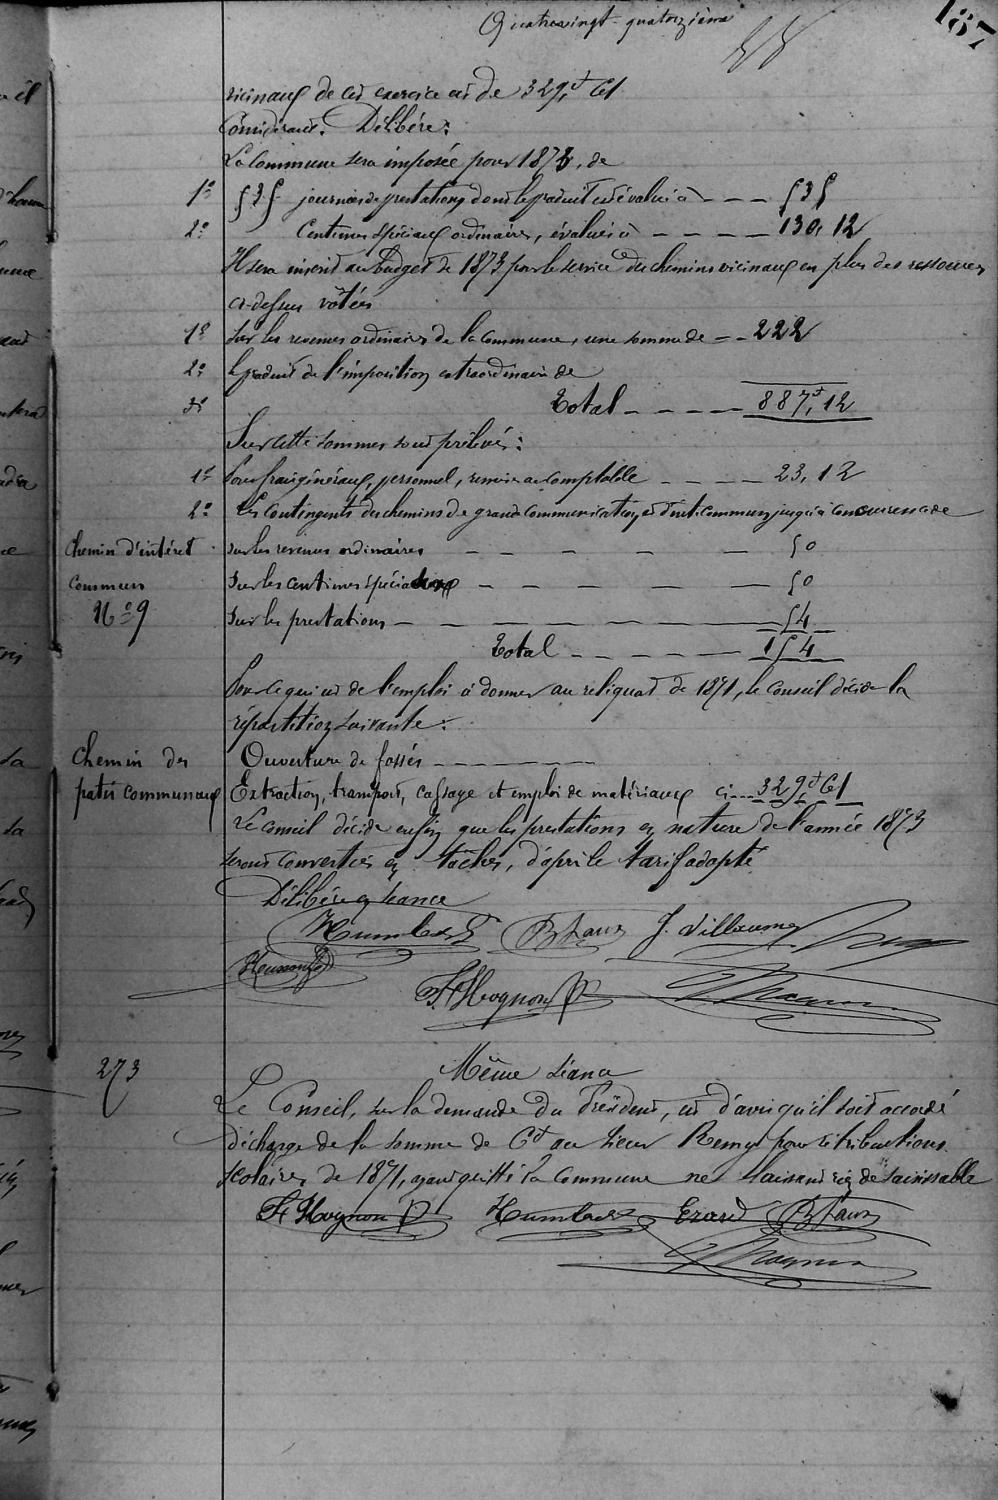 Quatrevingt-quatorzième
187
vicinaux de cet exercice est de 329,f 61
Considérant. Délibère:
La Commune sera imposée pour 1873, de
1º 535 journées de prestations dont le produit est évalué à - - - 535
2º Centimes spéciaux ordinaires, évalués à - - - - 130,12
Il sera inscrit au Budget de 1873 pour le service des chemins vicinaux en plus des ressources
ci-dessus votées
1º Sur les revenus ordinaires de la commune, une somme de - - 222
2º Le produit de l'imposition extraordinaire de
3º Total - - - - 887,f 12
Sur cette somme sont prélevés:
1º Pour frais généraux, personnel, remise au comptable - - - - 23,12
2º Les contingents des chemins de grande communication et d'int. commun jusqu'à concurrence de
Chemin d'intéret
commun
Nº 9
sur les revenus ordinaires - - - - - 50
Sur les centimes spéciaux - - - - - 50
Sur les prestations - - - - - - 54
Total - - - - - 154
Pour ce qui est de l'emploi à donner au reliquat de 1871, le Conseil décide la
répartition suivante:
Chemin des
patis communaux
Ouverture de fossés - - - - - -
Extraction, transport, cassage et emploi de matériaux ci... 329,f 61
Le conseil décide enfin que les prestations en nature de l'année 1873
seront converties en tâches, d'après le tarif adopté
Délibéré en séance
Humbert BFaux J. Villaume
F. Hognon
273
Même séance
Le Conseil, sur la demande du Président, est d'avis qu'il soit accordé
décharge de la somme de 6f au sieur Remy pour rétributions
scolaires de 1871, ayant quitté la commune ne laissant rien de saisissable
F. Hognon Humbert Erard BFaux